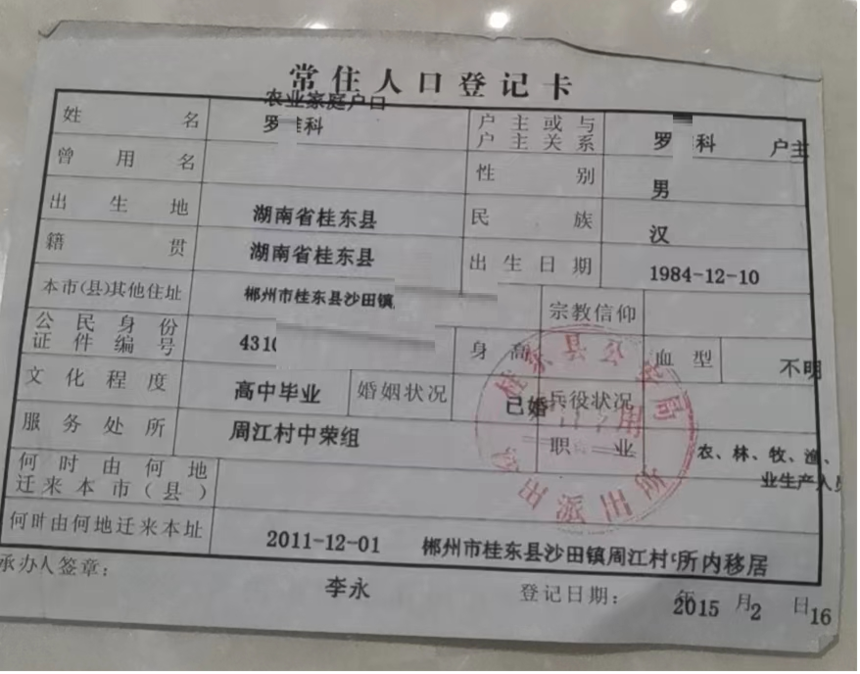 常住人口登记卡
农业家庭户口
姓名 罗 科 户主或与户主关系 罗 科 户主
曾用名 性别 男
出生地 湖南省桂东县 民族 汉
籍贯 湖南省桂东县 出生日期 1984-12-10
本市(县)其他住址 郴州市桂东县沙田镇 宗教信仰
公民身份证件编号 431 身高 血型 不明
文化程度 高中毕业 婚姻状况 已婚 兵役状况
服务处所 周江村中荣组 职业 农、林、牧、渔、
业生产人员
何时由何地迁来本市(县)
何时由何地迁来本址 2011-12-01 郴州市桂东县沙田镇周江村 所内移居
承办人签章: 李永 登记日期: 2015 年 2 月 16 日
桂东县公安局
沙田派出所
户口专用